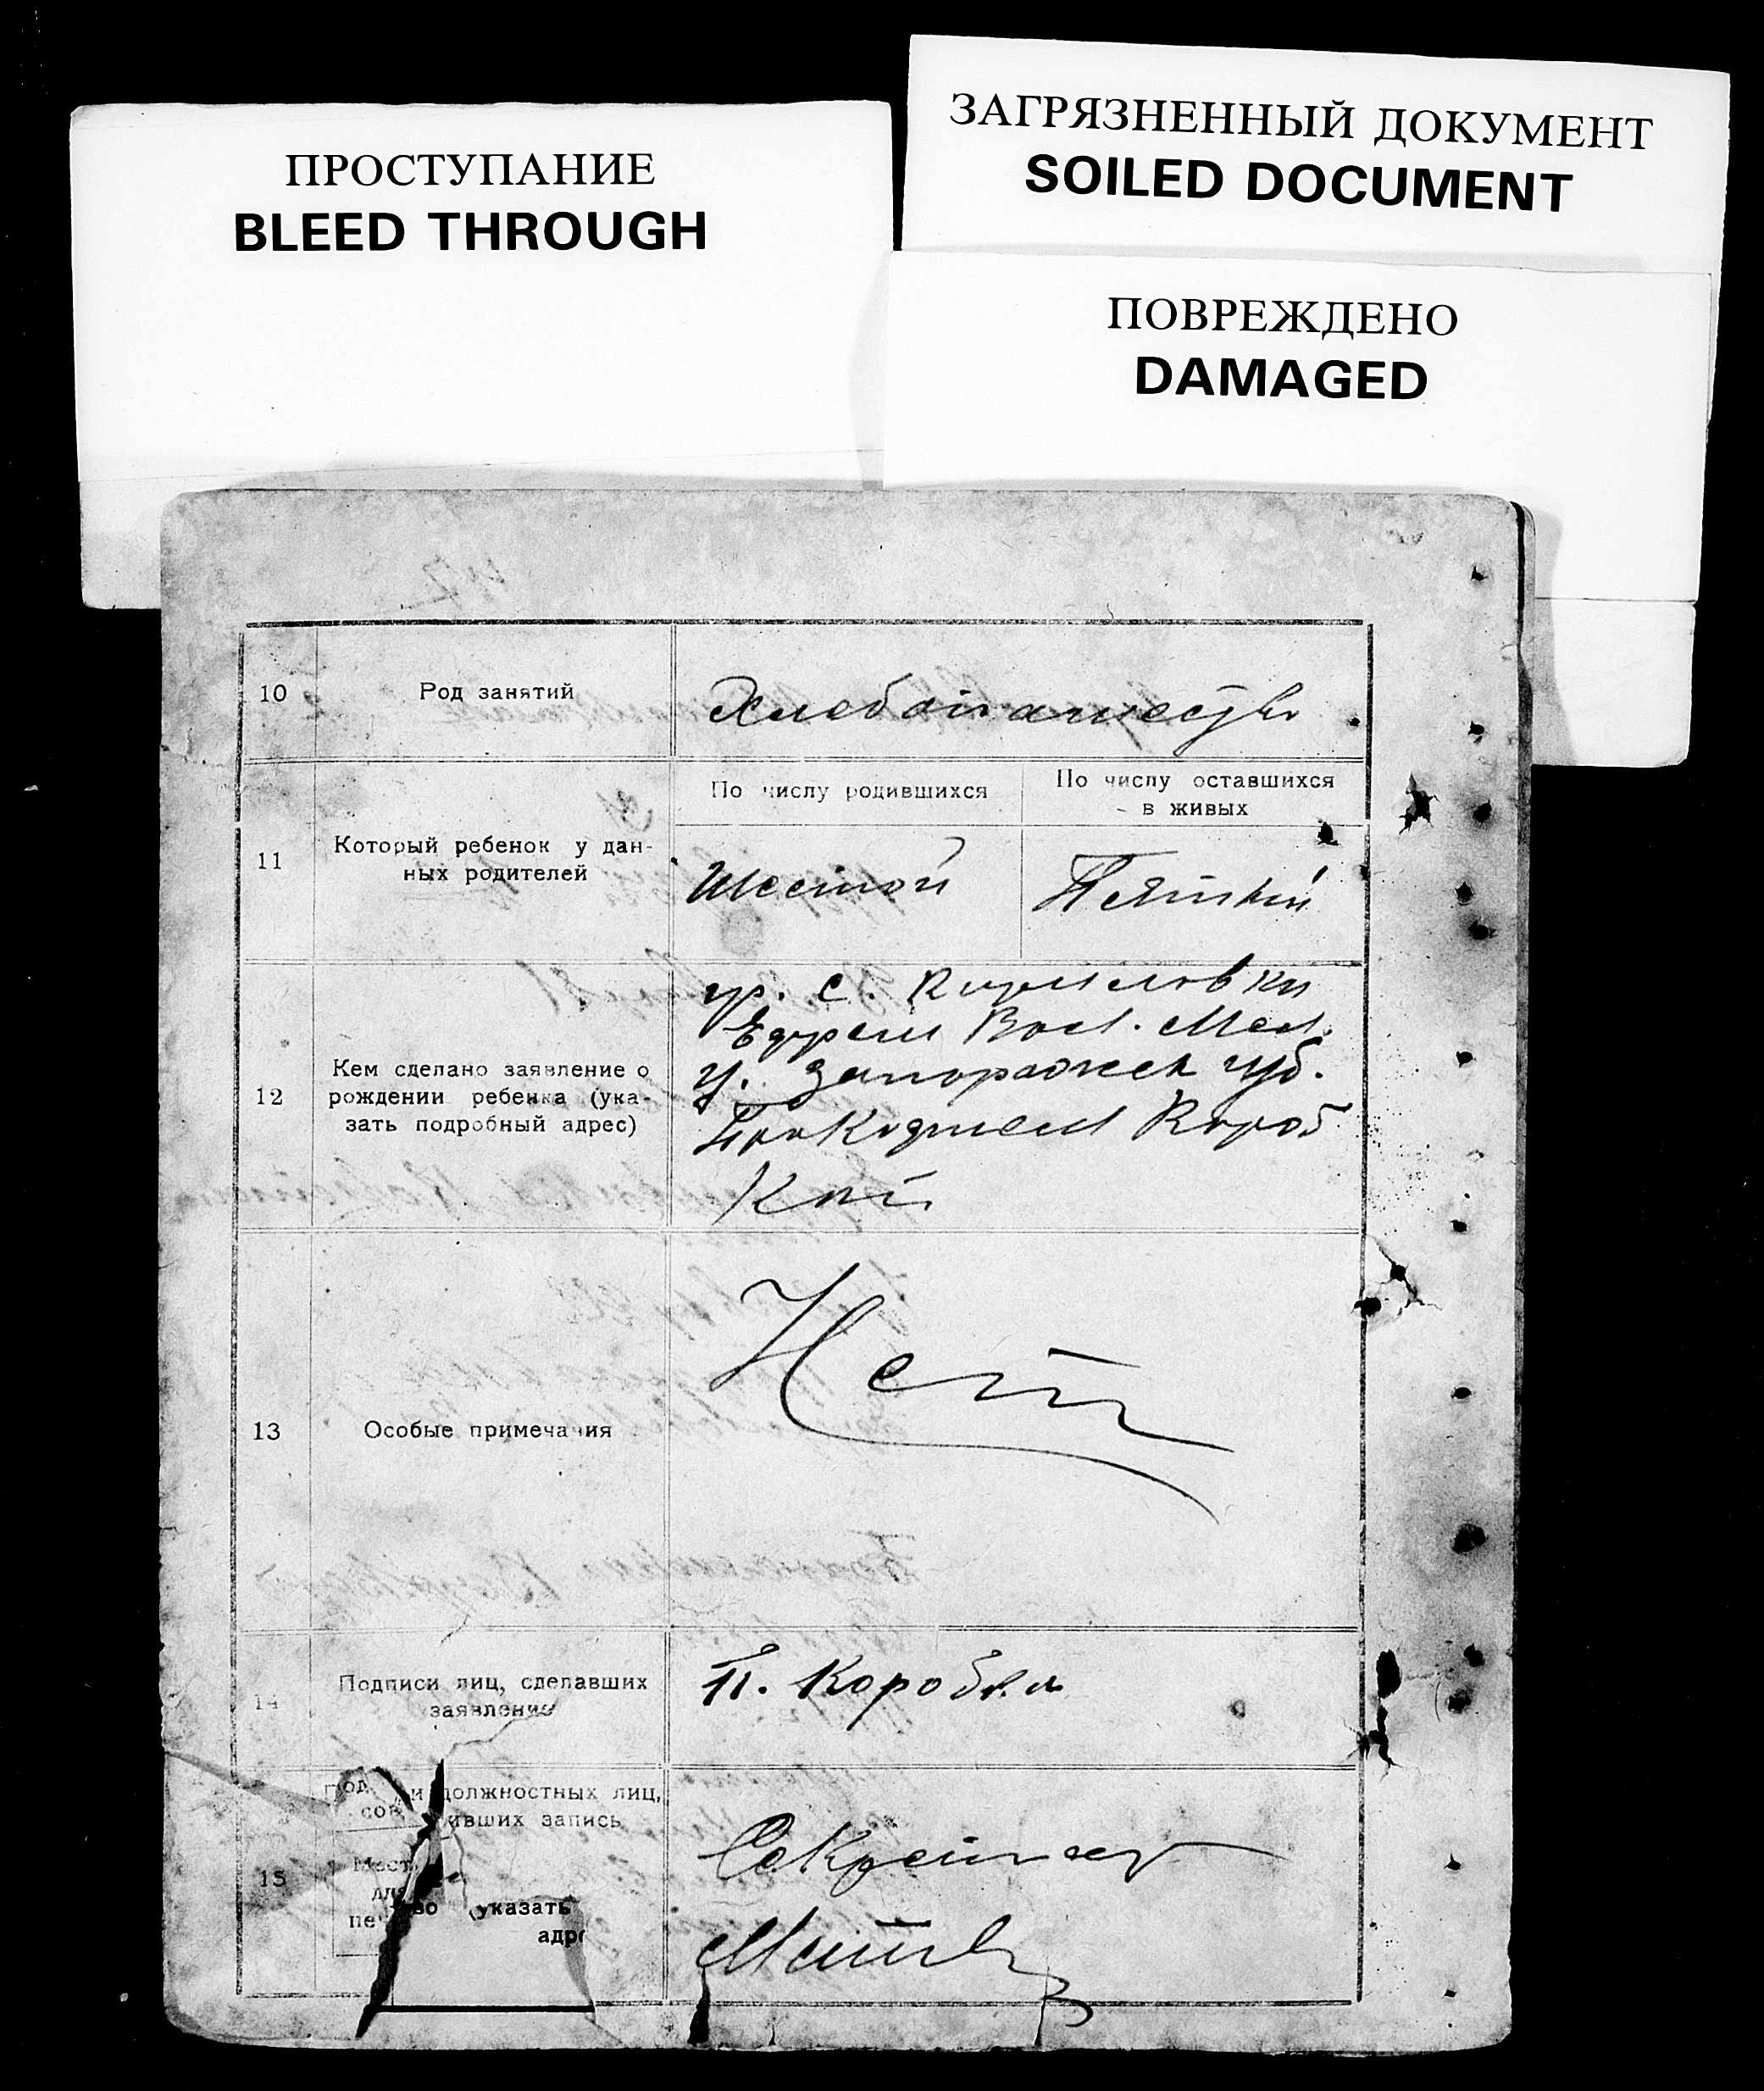 ПРОСТУПАНИЕ
BLEED THROUGH
ЗАГРЯЗНЕННЫЙ ДОКУМЕНТ
SOILED DOCUMENT
ПОВРЕЖДЕНО
DAMAGED
10
Род занятий
Хлебопашество
11
Который ребенок у дан-
ных родителей
По числу родившихся
Шестой
По числу оставшихся
в живых
Пятый
12
Кем сделано заявление о
рождении ребенка (ука-
зать подробный адрес)
гр. с. Кирилловки
Вол. Мел.
у. Запорожск губ.
Короб
Кой
13
Особые примечания
Нет
14
Подписи лиц, сделавших
заявление
П. Коробка
15
Под и должностных лиц,
сов ивших запись
Мест
для
пе во (указать
адре
Секретарь